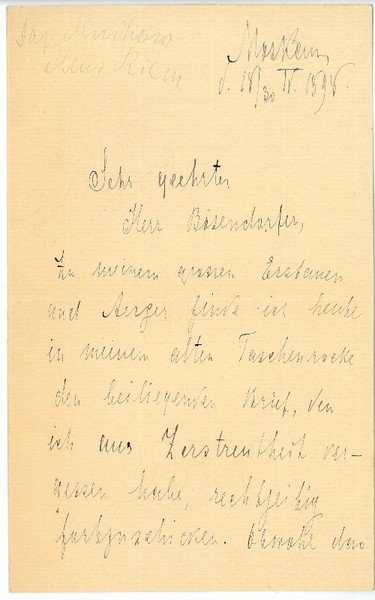 Moskau,
d. 18/30 IV. 1898.
Sehr geehrter
Herr Bösendorfer,
Zu meinem grossen Erstaunen
und Aerger finde ich heute
in meinem alten Taschenrocke
den beiliegenden Brief, den
ich aus Zerstreutheit ver-
gessen habe, rechtzeitig
fortzuschicken. Obwohl das